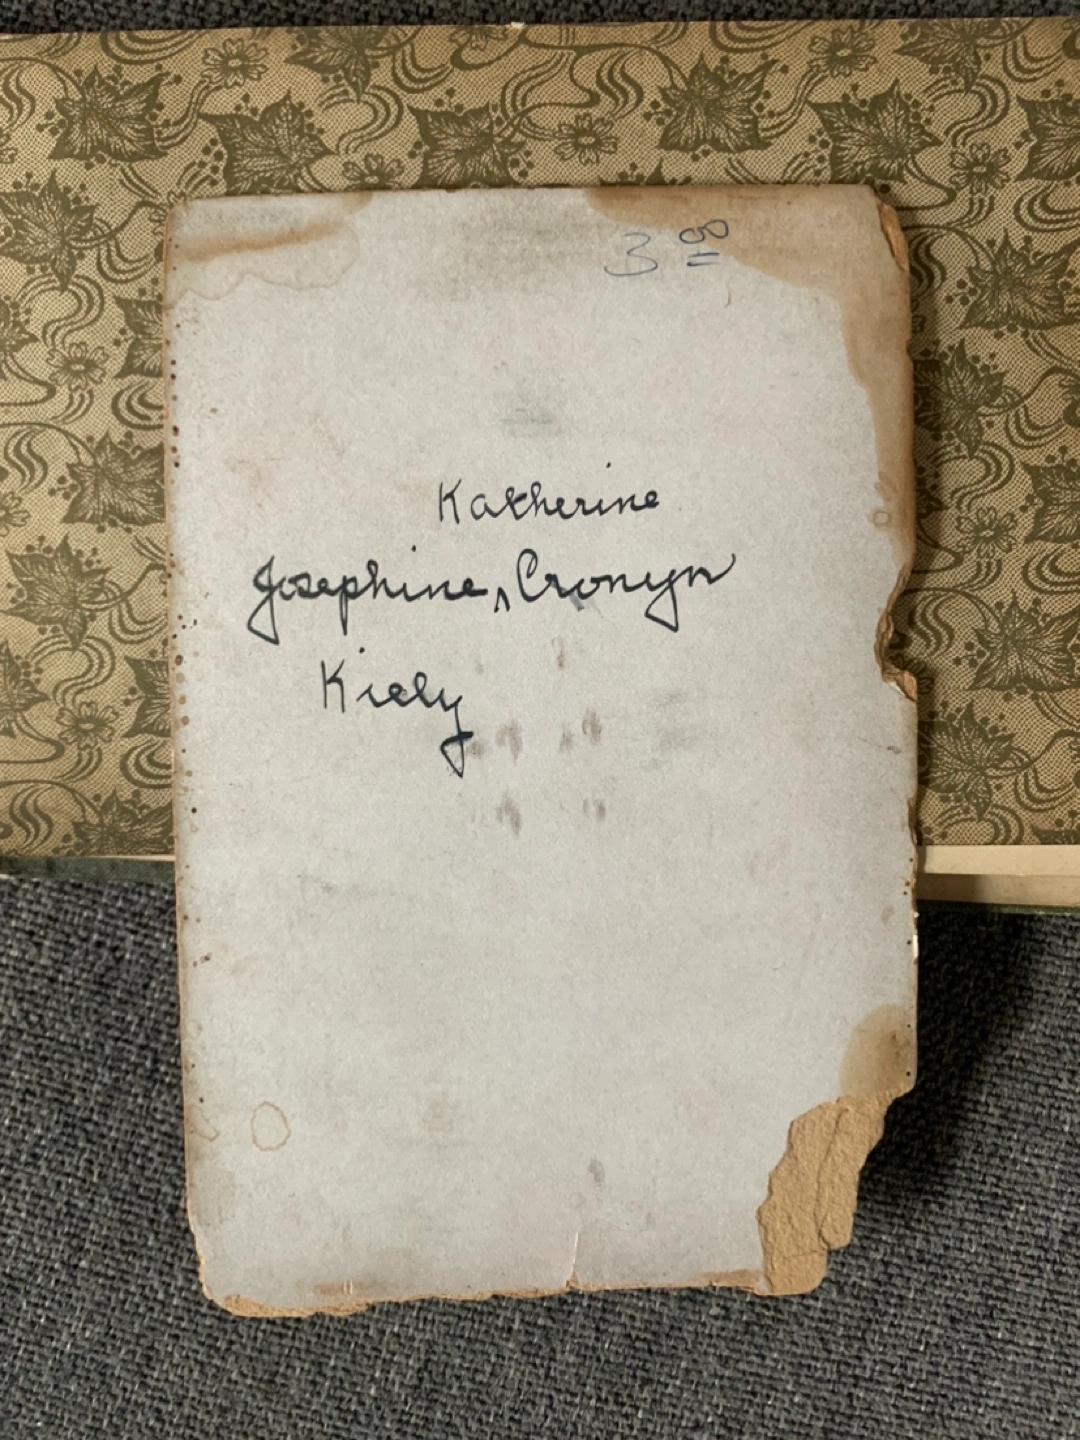 3 00
Katherine
Josephine ^ Cronyn
Kiely